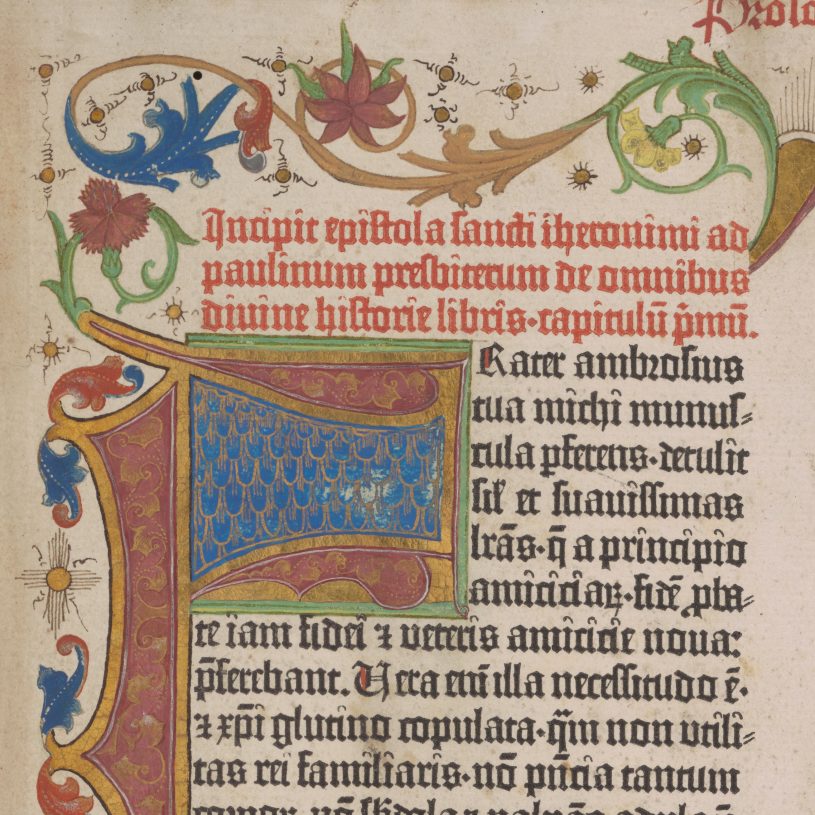 Prolo
Incipit epistola sancti iheronimi ad
paulinum presbiterum de omnibus
divine historie libris·capitulū p̄mū.
FRater ambrosius
tua michi munus⸗
cula ꝑferens·detulit
sil̛ et suavissimas
lrās·q̄ a principio
amiciciaꝝ·fidē ꝓba⸗
te iam fidei ⁊ veteris amicicie nova:
p̄ferebant. Vera em̄ illa necessitudo ē·
⁊ xp̄i glutino copulata·q̄m non utili⸗
tas rei familiaris·nō pn̄cia tantum